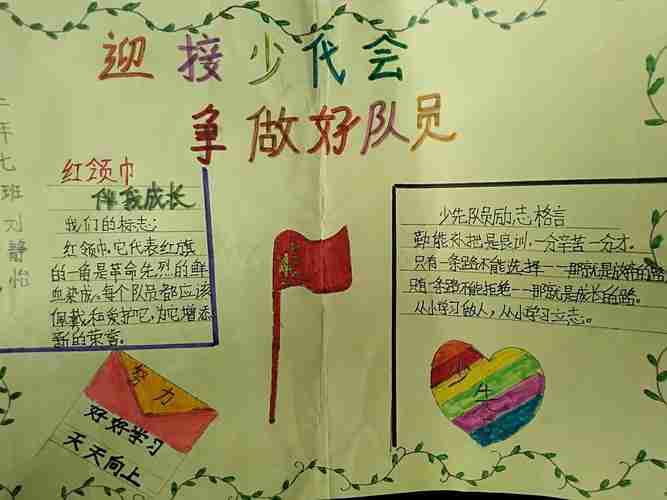 迎接少代会
争做好队员
二年七班刘静怡
红领巾
伴我成长
我们的标志:
红领巾,它代表红旗
的一角是革命先烈的鲜
血染成,每个队员都应该
佩戴和爱护它,为它增添
新的荣誉。
少先队员励志格言
勤能补拙是良训,一分辛苦一分才。
只有一条路不能选择——那就是放弃的路
只有一条路不能拒绝——那就是成长的路。
从小学习做人,从小学习立志。
努力
好好学习
天天向上
生